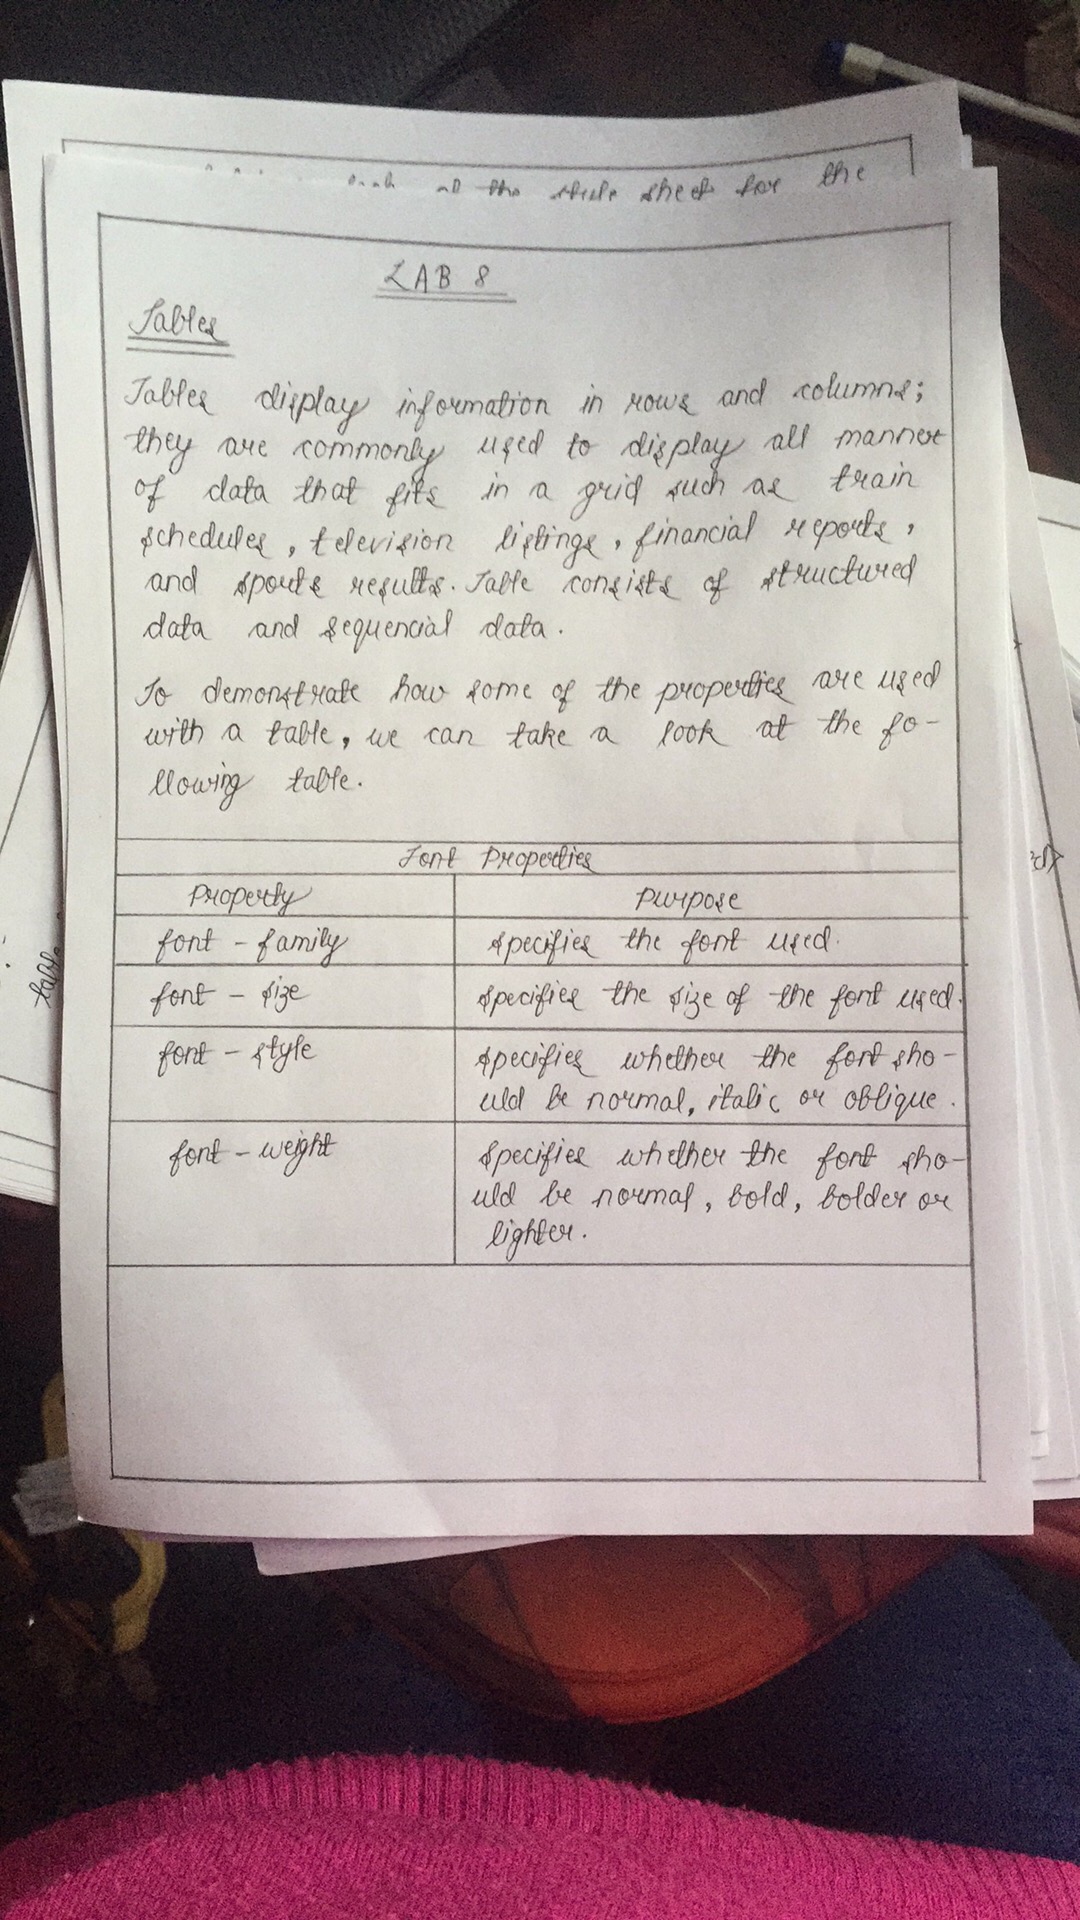 at the style sheet for the
LAB 8
Tables
Tables display information in rows and columns;
they are commonly used to display all manner
of data that fits in a grid such as train
schedules, television listings, financial reports,
and sports results. Table consists of structured
data and sequencial data.
To demonstrate how some of the properties are used
with a table, we can take a look at the fo-
llowing table.
Font Properties
Property Purpose
font - family specifies the font used.
font - size specifies the size of the font used.
font - style specifies whether the font sho-
uld be normal, italic or oblique.
font - weight specifies whether the font sho-
uld be normal, bold, bolder or
lighter.
table